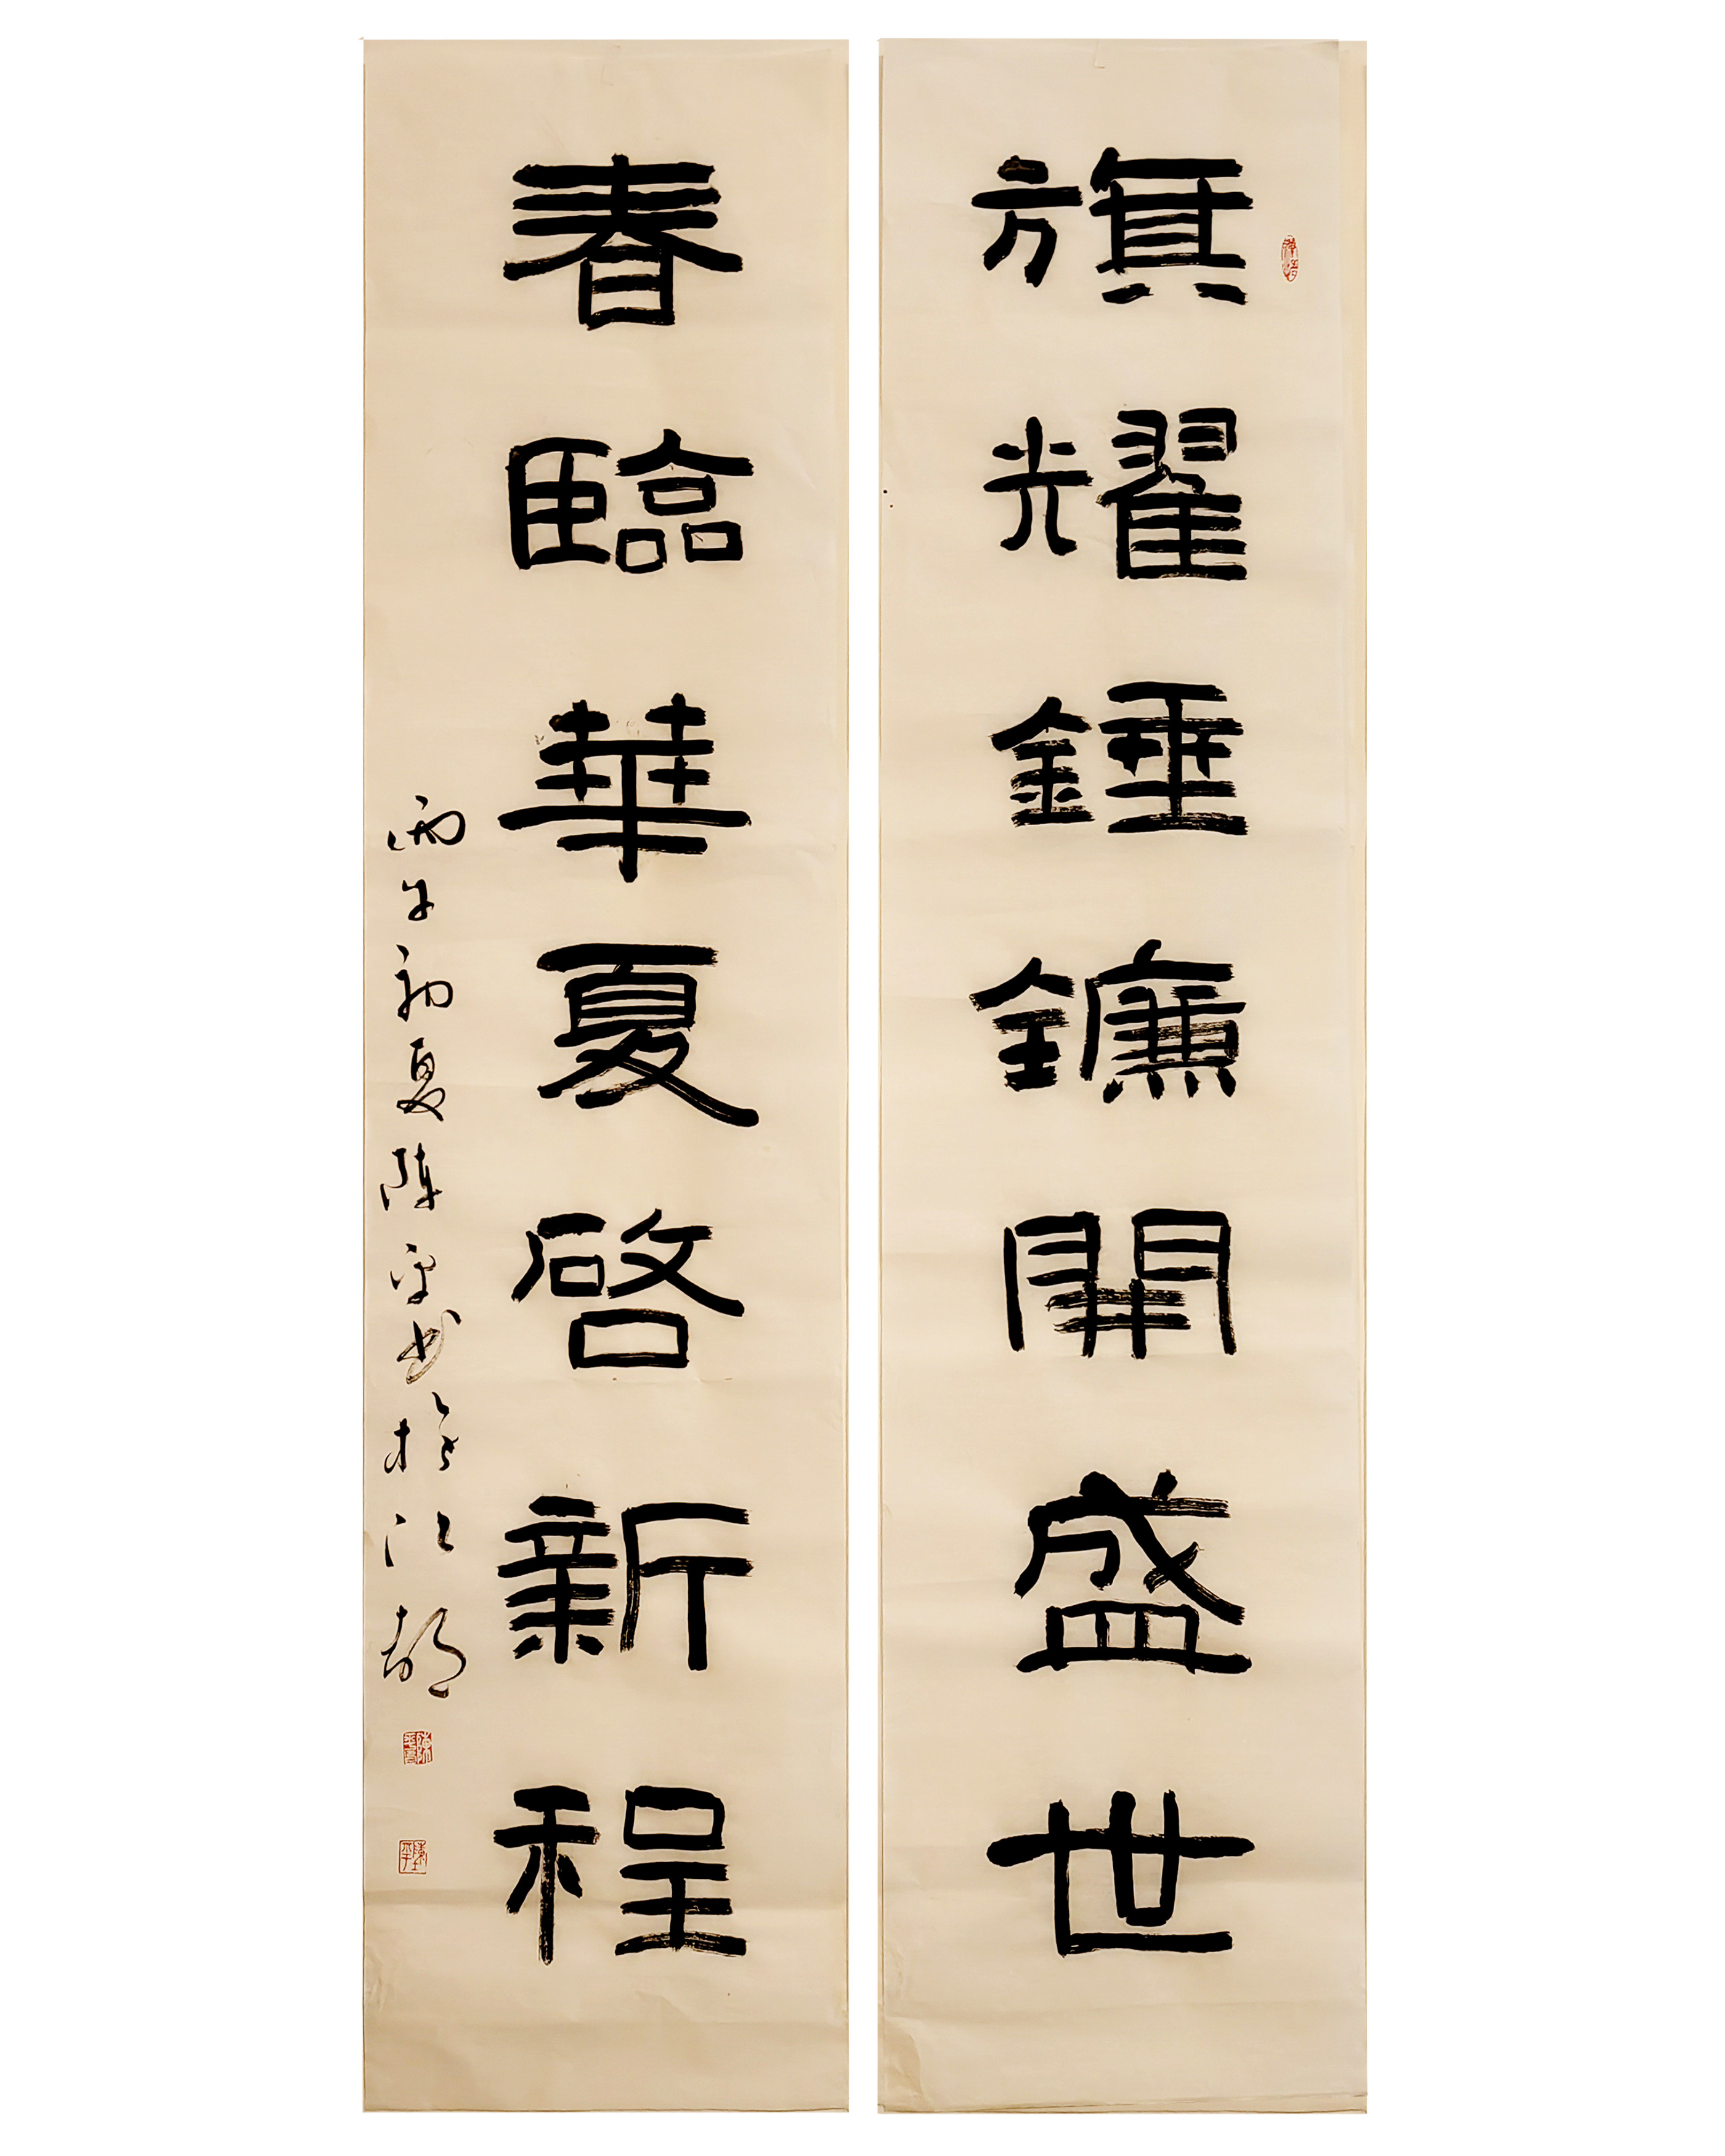 旗耀錘鐮開盛世
春臨華夏啓新程
丙午初夏陈平书於江都